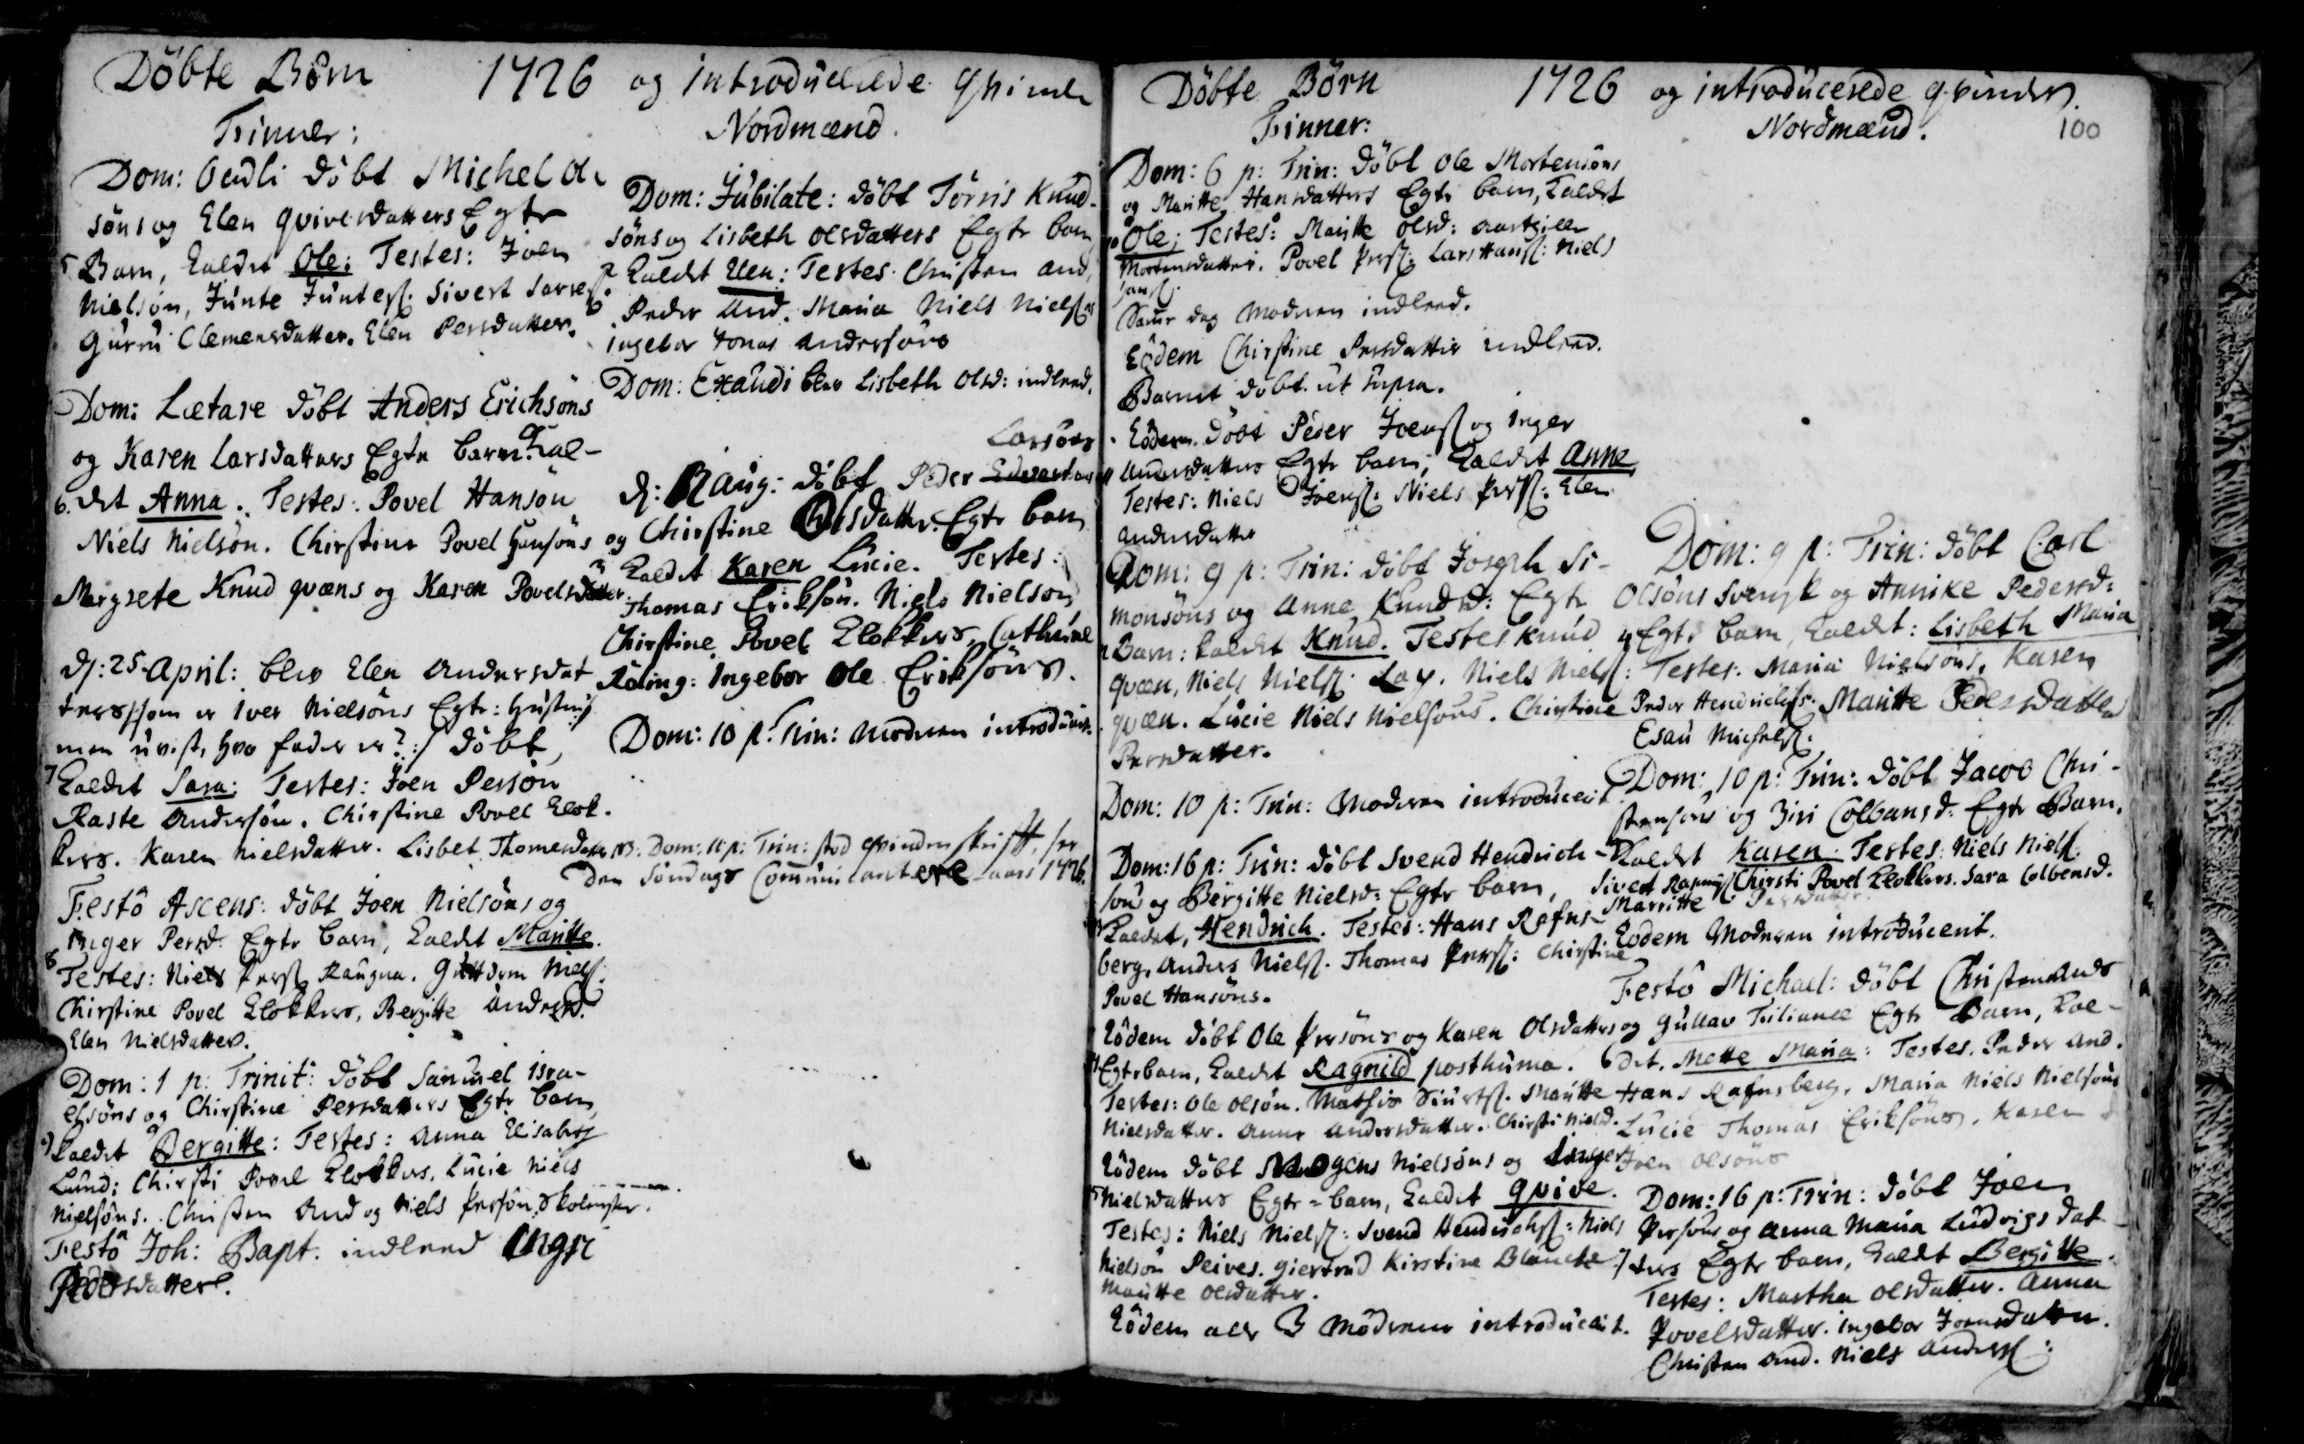 Döbte Börn 1726 og introducerede qvinder
Finner:
Dom: Oculi döbt Michel Ol
söns og Elen qviversdatters Egte
5 Barn, kaldet Ole: Testes: Joen
Nielsön, Junte Juntes: Sivert
Gurru Clemensdatter. Elen Persdatter.
Dom: Lætare döbt Anders Erichsöns
og Karen Larsdatters Egte barn kal-
6. det Anna. Testes: Povel Hansön
Niels Nielsön. Chirstine Povel Hansöns
Margrete Knud qvæns og Karen Povelsdatter.
d: 25 April: blev Elen Andersdat
ters som er Iver Nielsöns Egte: hustru
men uvist, hvo fader er?:/ döbt,
7 kaldet Sara: Testes: Joen Persön
Raste Andersön. Chirstine Povel klok-
kers. Karen Nielsdatter. Lisbet Thomesdatter
Festô Ascens: döbt Joen Nielsöns og
Inger Persd. Egte barn, kaldet Maritte.
8 Testes: Niels Perss. Guttorm Niels:
Chirstine Povel klokkers, Bergitte Andersd.
Elen Nielsdatter.
Dom: 1 p: Trinit: döbt Samuel Isra-
elsöns og Chirstine Persdatters Egte barn
9 kaldet Bergitte: Testes: Anna Elisabeth
Lund: Chirsti Povel klokkers, Lucie Niels
Nielsöns. Christen And og Niels Persön, Skolemester.
Festô Joh: Bapt. indleed Inger
Pedersdatter.
Nordmænd.
Dom: Jubilate: döbt Törris Knud-
söns og Lisbeth Olsdatters Egte barn
2 kaldet Elen: Testes Christen And,
Peder And. Maria Niels Nielss
Ingebor Jonas Andersöns
Dom: Exaudi blev Lisbeth Olsd: indleed.
Larsöns
d: Aug: döbt Peder
og Chirstine Olsdatter Egte barn
3 kaldet Karen Lucie. Testes:
Thomas Eriksön. Niels Nielsön
Chirstine Povel klokkers, Cathrine
Röling: Ingebor Ole Eriksöns.
Dom: 10 p: Trin: moderen introducit.
NB. Dom: 11 p: Trin: stod qvinden skrifft for
den söndags Communicantere aars 1726.
Döbte Börn 1726 og introducerede qvinder.
100
Finner:
Dom: 6 p: Trin: döbt Ole Mortensöns
og Maritte Hansdatters Egte barn, kaldet
10 Ole; Testes: Maritte Olsd:
Mortensdatter. Povel Perss: Lars Hanss: Niels
Janss.
Samme dag Moderen indleed.
Eôdem Chirstine Persdatter indleed.
Barnet döbt ut supra.
Eôdem döbt Peder Joenss og Inger
11 Andersdatters Egte barn, kaldet Anne
Testes: Niels Joenss: Niels Perss: Elen
Andersdatter
Dom: 9 p: Trin: döbt Joseph Si-
monsöns og Anne Knudsd: Egte
12 Barn: kaldet Knud. Testes Knud
qvæn, Niels Nielss. Niels Nielss:
qvæn. Lucie Niels Nielsöns. Chirstine
Persdatter.
Dom: 10 p: Trin: Moderen introducerit.
Dom: 16 p: Trin: döbt Svend Hendrich-
sön og Bergitte Nielsd: Egte barn,
13 kaldet, Hendrich. Testes: Hans Rafns-
berg, Anders Nielss. Thomas Perss: Chirstine
Povel Hansöns.
Eôdem döbt Ole Persöns og Karen Olsdatters
14 Egte barn, kaldet Ragnild posthuma.
Testes: Ole Olsön. Mathis Siurss. Maritte
Nielsdatter. Anne Andersdatter. Chirsti Nielsd.
Eôdem döbt Mogens Nielsöns og Inger
15 Nielsdatters Egte-barn, kaldet qvive.
Testes: Niels Nielss: Svend Hendrichss: Niels
Nielsön Peives. Giertrud Kirstine
Maritte Olsdatter.
Eôdem alle 3 Mödrene introducerit.
Nordmænd.
Dom: 9 p: Trin: döbt Carl
Olsöns Svensk og Annike Pedersd:
4 Egte barn, kaldet: Lisbeth Maria
Testes: Maria Nielsöns, Karen
Peder Hendrichss. Maritte Pedersdatter
Esau Michelss.
Dom: 10 p: Trin: döbt Jacob Chri-
stensöns og Ziri Colbansd. Egte Barn.
5 kaldet Karen. Testes: Niels Niels.
Sivert Rasmuss Chirsti Povel klokkers. Sara Colbensd.
Marritte Persdatter.
Eodem Moderen introducerit.
Festô Michael: döbt Christen Ands
og Gullav Egte Barn, kal-
6 det. Mette Maria: Testes. Peder And.
Hans Rafnsberg. Maria Niels Nielsöns
Lucie Thomas Eriksöns. Karen
Joen Olsöns
Dom: 16 p: Trin: döbt Joen
Persöns og Anna Maria Ludvigs dat
7 ters Egte barn, kaldet Bergitte.
Testes: Martha Olsdatter. Anna
Povelsdatter. Ingebor Joensdatter.
Christen And. Niels Anderss: